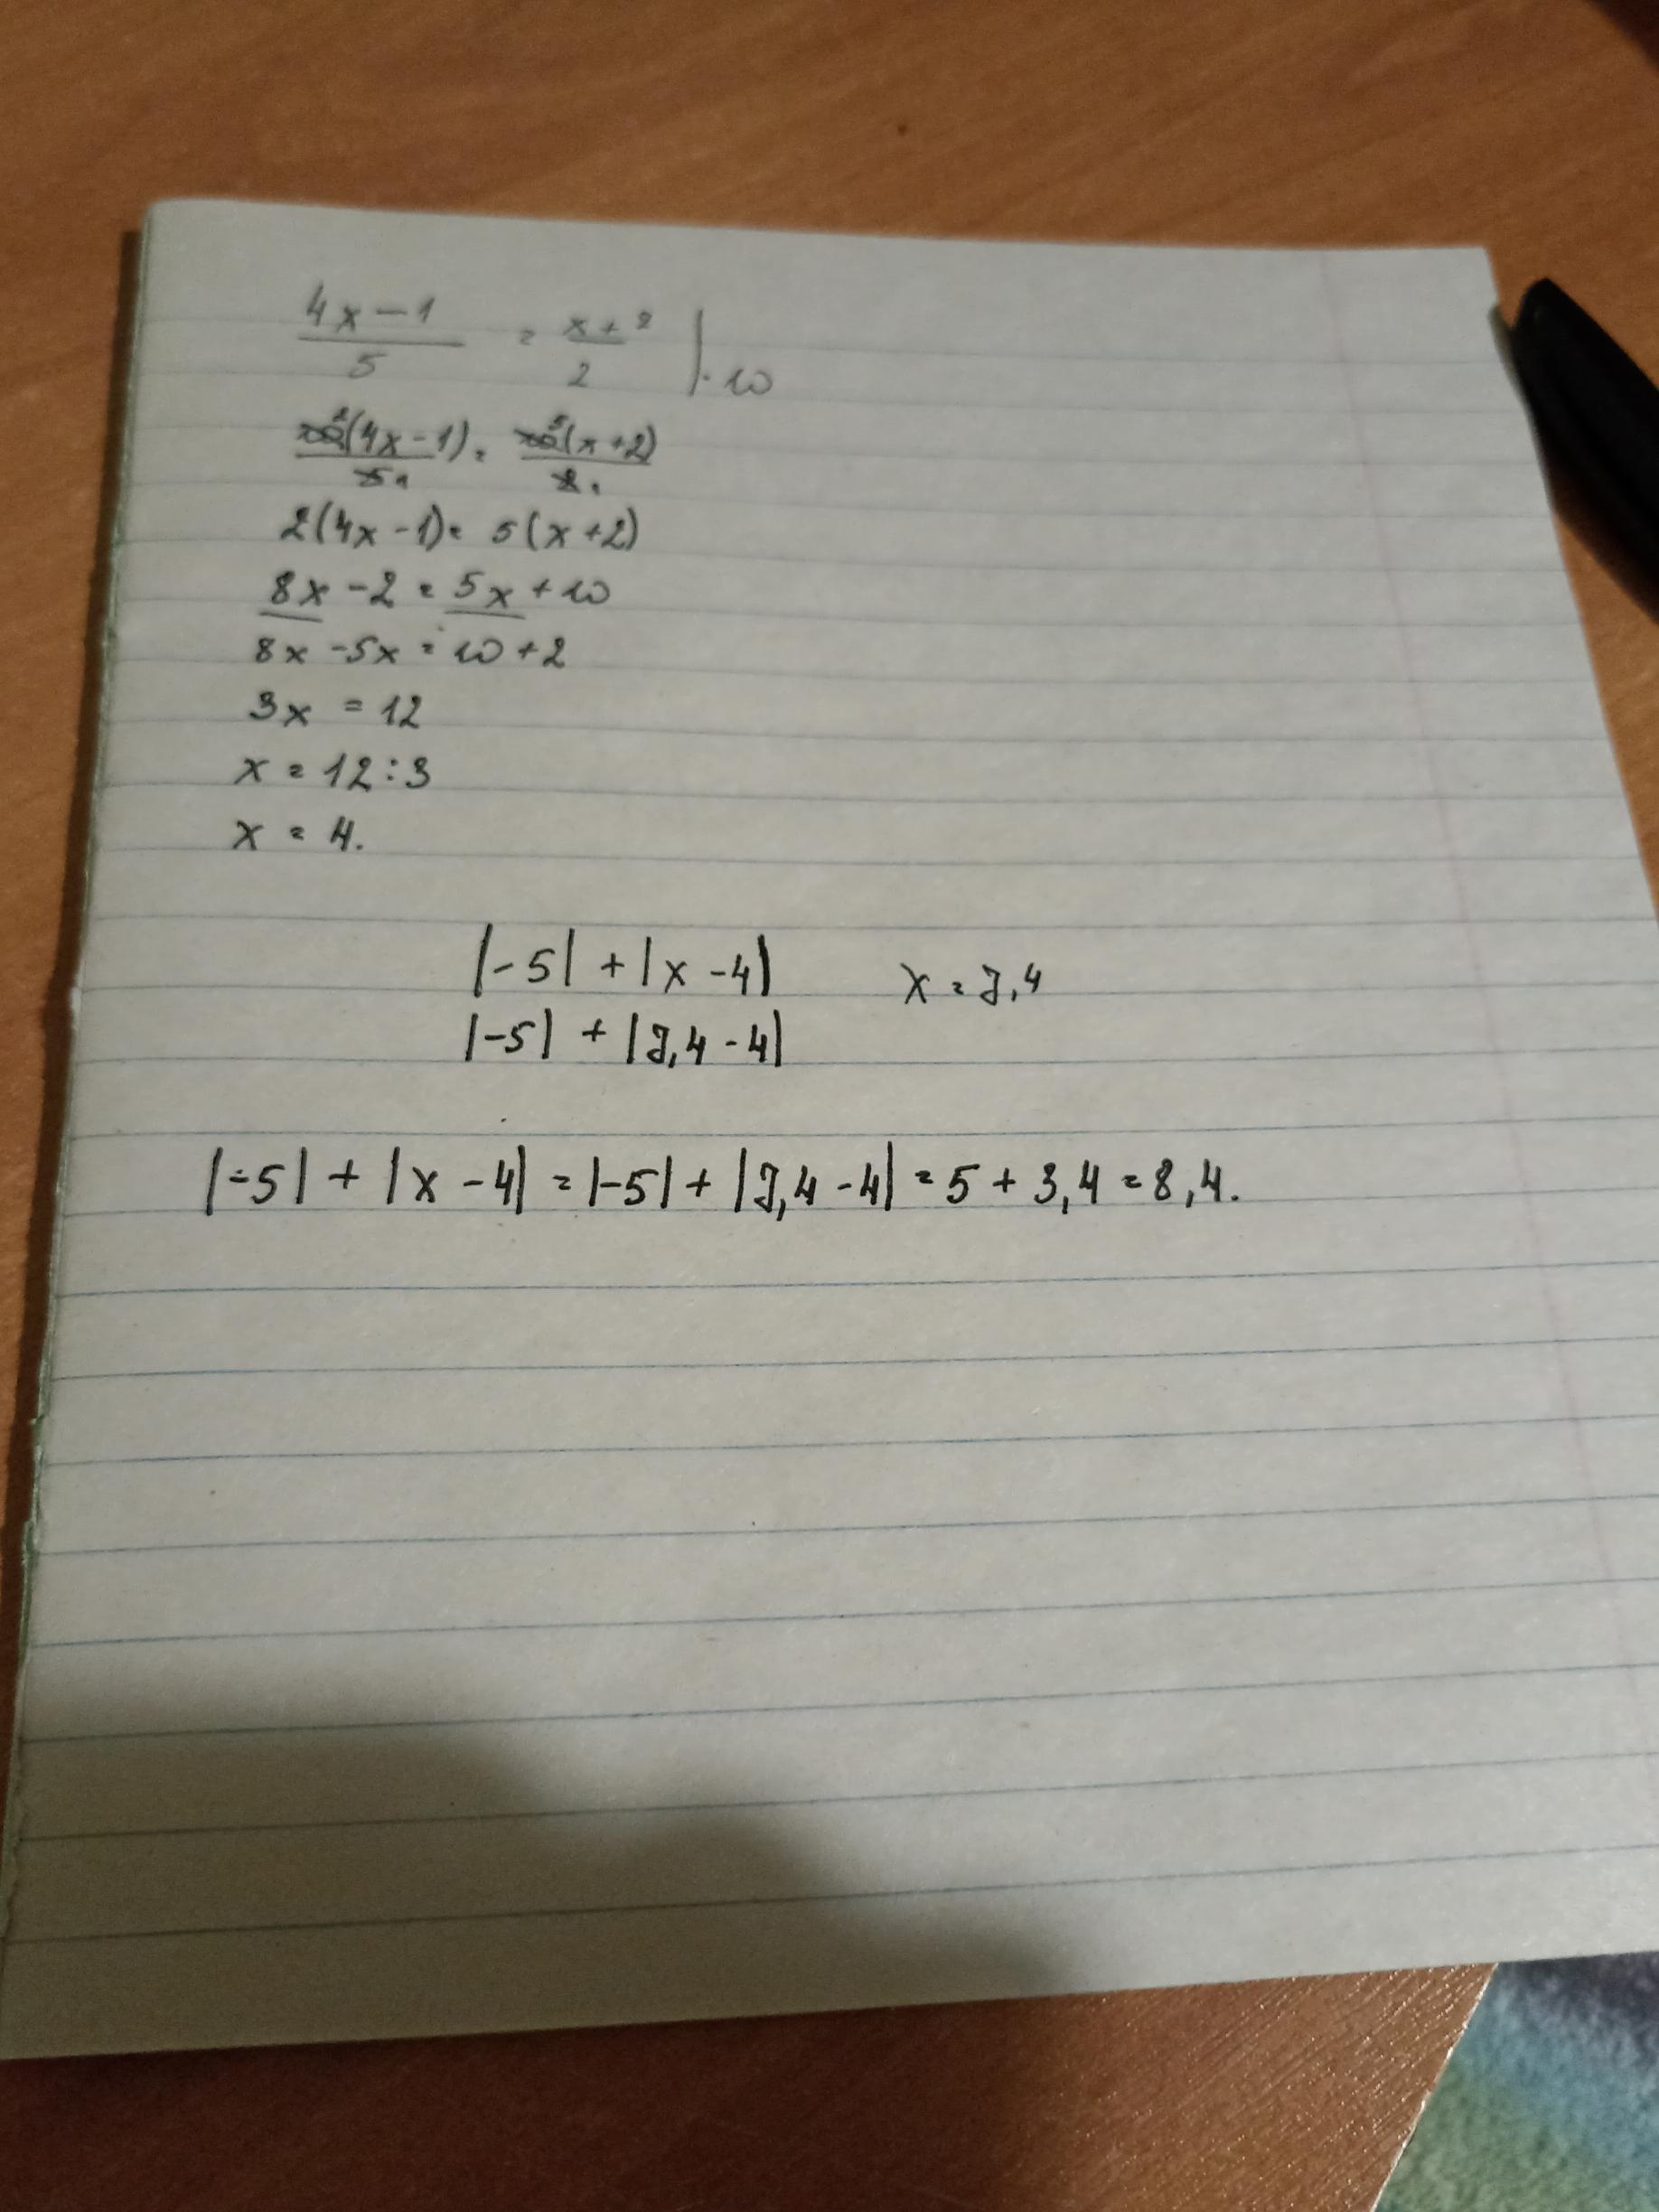 4x-1/5 = x+2/2 |·10
10²(4x-1)/5₁ = 10⁵(x+2)/2₁
2(4x-1) = 5(x+2)
8x-2 = 5x+10
8x-5x = 10+2
3x = 12
x = 12:3
x = 4.
|-5| + |x-4| x = 7,4
|-5| + |7,4-4|
|-5| + |x-4| = |-5| + |7,4-4| = 5 + 3,4 = 8,4.